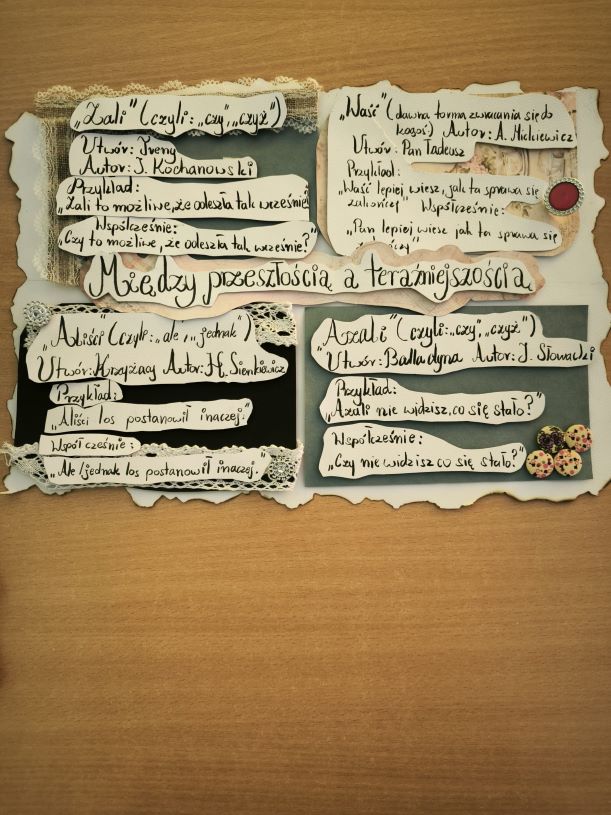 „Zali" (czyli: „czy", „czyż")
Utwór: Treny
Autor: J. Kochanowski
Przykład:
„Zali to możliwe, że odeszła tak wcześnie?
Współcześnie:
„Czy to możliwe, że odeszła tak wcześnie?"
„Waść" (dawna forma zwracania się do
kogoś) Autor: A. Mickiewicz
Utwór: Pan Tadeusz
Przykład:
„Waść lepiej wiesz, jak ta sprawa się
zakończy" Współcześnie:
„Pan lepiej wiesz jak ta sprawa się
Między przeszłością a teraźniejszością
„Aliści" (czyli: „ale", „jednak")
Utwór: Krzyżacy Autor: H. Sienkiewicz
Przykład:
„Aliści los postanowił inaczej."
Współcześnie:
„Ale/jednak los postanowił inaczej."
„Azali" (czyli: „czy", „czyż")
Utwór: Balladyna Autor: J. Słowacki
Przykład:
„Azali nie widzisz, co się stało?"
Współcześnie:
„Czy nie widzisz co się stało?"